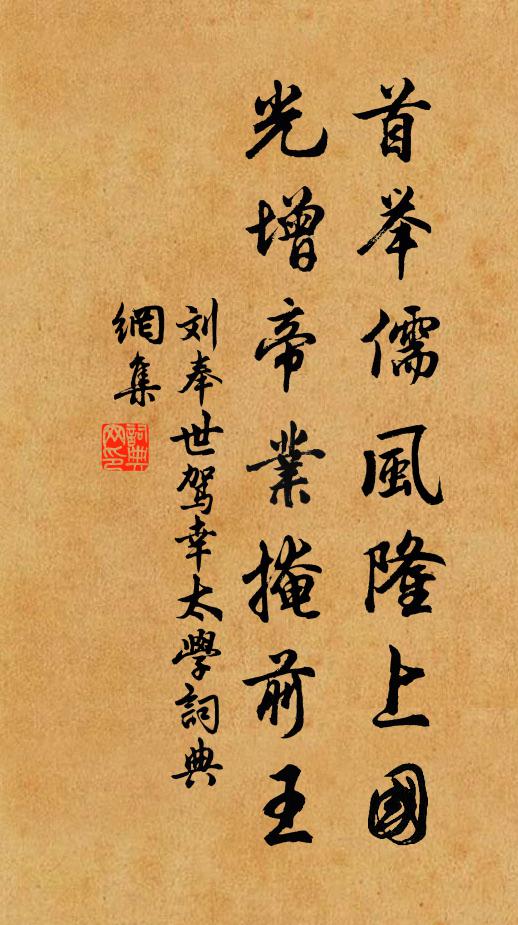 首举儒風隆上國
光增帝業掩前王
刘奉世驾幸太學詞典
網集
詞典
网印